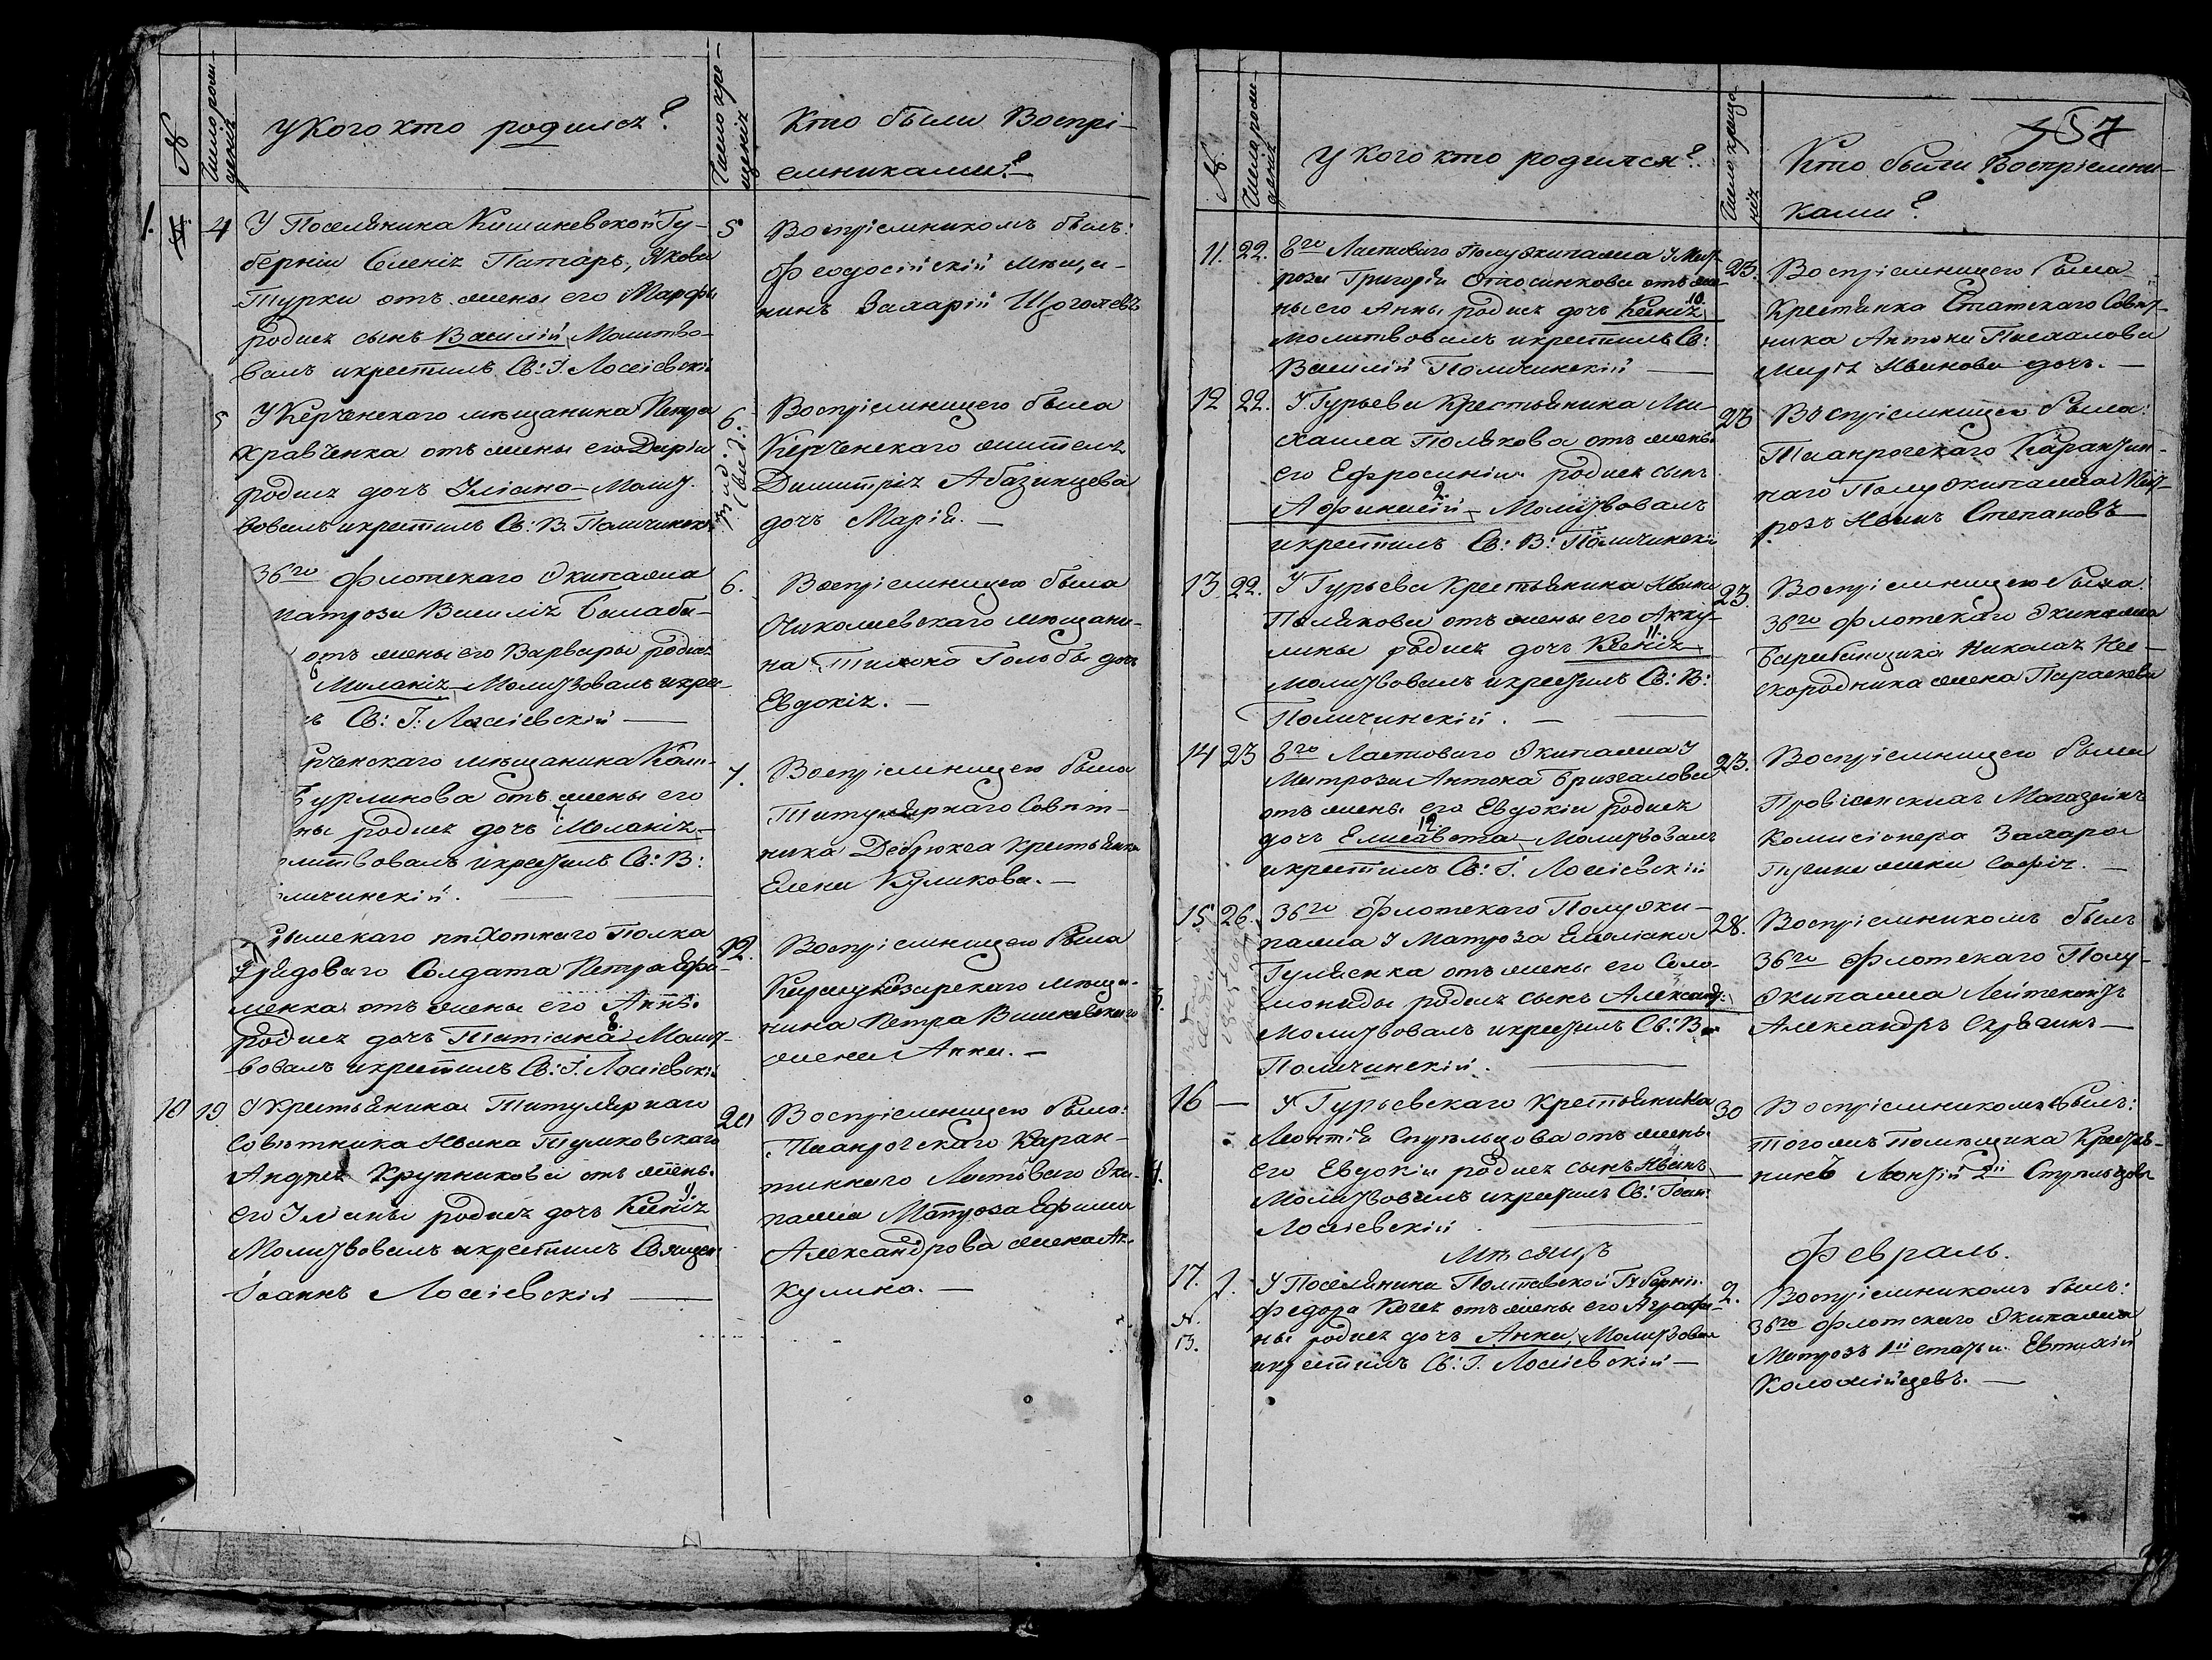 №
Число рож-
денія
У Кого кто родился?
Число кре-
щенія
Кто были Воспрі-
емниками?
1. 4 У Поселянина Кишиневской Гу-
берніи Селенія Татаръ, Якова
Турки отъ жены его Марфы
родися сынъ Василій, Молитво-
валъ и крестилъ Св: І. Лосіевскій
5 Воспріемникомъ былъ:
Феодосійскій мѣща-
нинъ Захарій Щоголевъ
5 У Керченскаго мѣщанина Петра
Кравченка отъ жены его Даріи
родися дочь Уліана – Молит.
вовалъ и крестилъ Св: В. Поличинскій
6. Воспріемницею была
Керченскаго жителя
Димитрія Абазинцева
дочь Марія. —
36го Флотскаго Экипажа
матроза Василія Балаба-
отъ жены его Варвары родися
6 Меланія Молитвовалъ и крес-
ъ Св: І: Лосіевскій —
6. Воспріемницею была
Николаевскаго мѣщани-
на Тихона Голобы дочь
Евдокія. —
рченскаго мѣщанина Кон-
Бурликова отъ жены его
ны родися дочь 7 Меланія —
олитвовалъ и крестилъ Св: В:
оличинскій. —
7. Воспріемницею была
Титулярнаго Совѣт-
ника Дебрюкса крестьянка
Елена Куликова. —
рымскаго пѣхотнаго Полка
рядоваго Солдата Петра Ефи-
менка отъ жены его Анны.
родися дочь Татіана 8. Молит-
вовалъ и крестилъ Св: І. Лосіевскій
12. Воспріемницею была
мѣща-
нина Петра Вишневскаго
жена Анна. —
10 19. У крестьянина Титулярнаго
Совѣтника Ивана Тумковскаго
Андрея Крупникова отъ жены
его Уліаны родися дочь Ксенія 9.
Молитвовалъ и крестилъ Священ.
Іоаннъ Лосіевскій —
20 Воспріемницею была:
Таганрогскаго Каран-
тиннаго Ластоваго Эки-
пажа Матроза Ефима
Александрова жена Ак-
кулина. —
157
№.
Число рож-
денія
У Кого кто родился?
Число креще-
нія
Кто были Воспріемни-
ками?
11. 22. 8го Ластоваго Полуэкипажа У Мат-
роза Григорія отъ же-
ны его Анны родися дочь Ксенія 10.
молитвовалъ и крестилъ Св:
Василій Поличинскій —
23. Воспріемницею была
Крестьянка Статскаго Совѣт-
ника Антона Паскалова
Марѳа Иванова дочь. —
12 22. У Гурьева Крестьянина Ми-
хаила Полякова отъ жены
его Ефросиніи родися сынъ
Афанасій 2. – Молитвовалъ
и крестилъ Св: В: Поличинскій
23 Воспріемницею была:
Таганрогскаго Карантин-
наго Полуэкипажа Мат-
розъ Иванъ Степановъ
13 22. У Гурьева Крестьянина Ивана
Полякова отъ жены его Акку-
лины родися дочь Ксенія 11.
Молитвовалъ и крестилъ Св: В:
Поличинскій. —
23. Воспріемницею была:
36го Флотскаго Экипажа
барабанщика Николая Нес-
кородника жена Параскева
14 23 8го Ластоваго Экипажа У
Матроза Антона Бризгалова
отъ жены его Евдокіи родися
дочь Елисавета 12. Молитвовалъ
и крестилъ Св: І. Лосіевскій
23. Воспріемницею была
Провіанскаго Магазейна
Комисіонера Захара
Пугина жена Софія. —
15 26. 36го Флотскаго Полуэки-
пажа У Матроза Емеліана
Гуляенка отъ жены его Соло-
мониды родися сынъ Александръ:
Молитвовалъ и крестилъ Св: В:
Поличинскій. —
3.
28. Воспріемникомъ былъ
36го Флотскаго Полу-
экипажа Лейтенантъ
Александръ Скрягинъ —
16 — У Гурьевскаго Крестьянина
Леонтія Ступльцова отъ жены
его Евдокіи родися сынъ Иванъ 4
Молитвовалъ и крестилъ Св: Іоан.
Лосіевскій. —
4.
30 Воспріемникомъ былъ:
Того жъ Помѣщика Крестья-
нинъ Леонтій 2й Ступльцовъ
Мѣсяцъ Февраль.
17. 1. У Поселянина Полтавской Губерніи
Федора Когея отъ жены его Аграфе-
ны родися дочь Анна, Молитвовал
и крестилъ Св: І. Лосіевскій —
№.
13.
2. Воспріемникомъ былъ:
36го Флотскаго Экипажа
Матрозъ 1й статьи Евтихій
Коломійцевъ. —